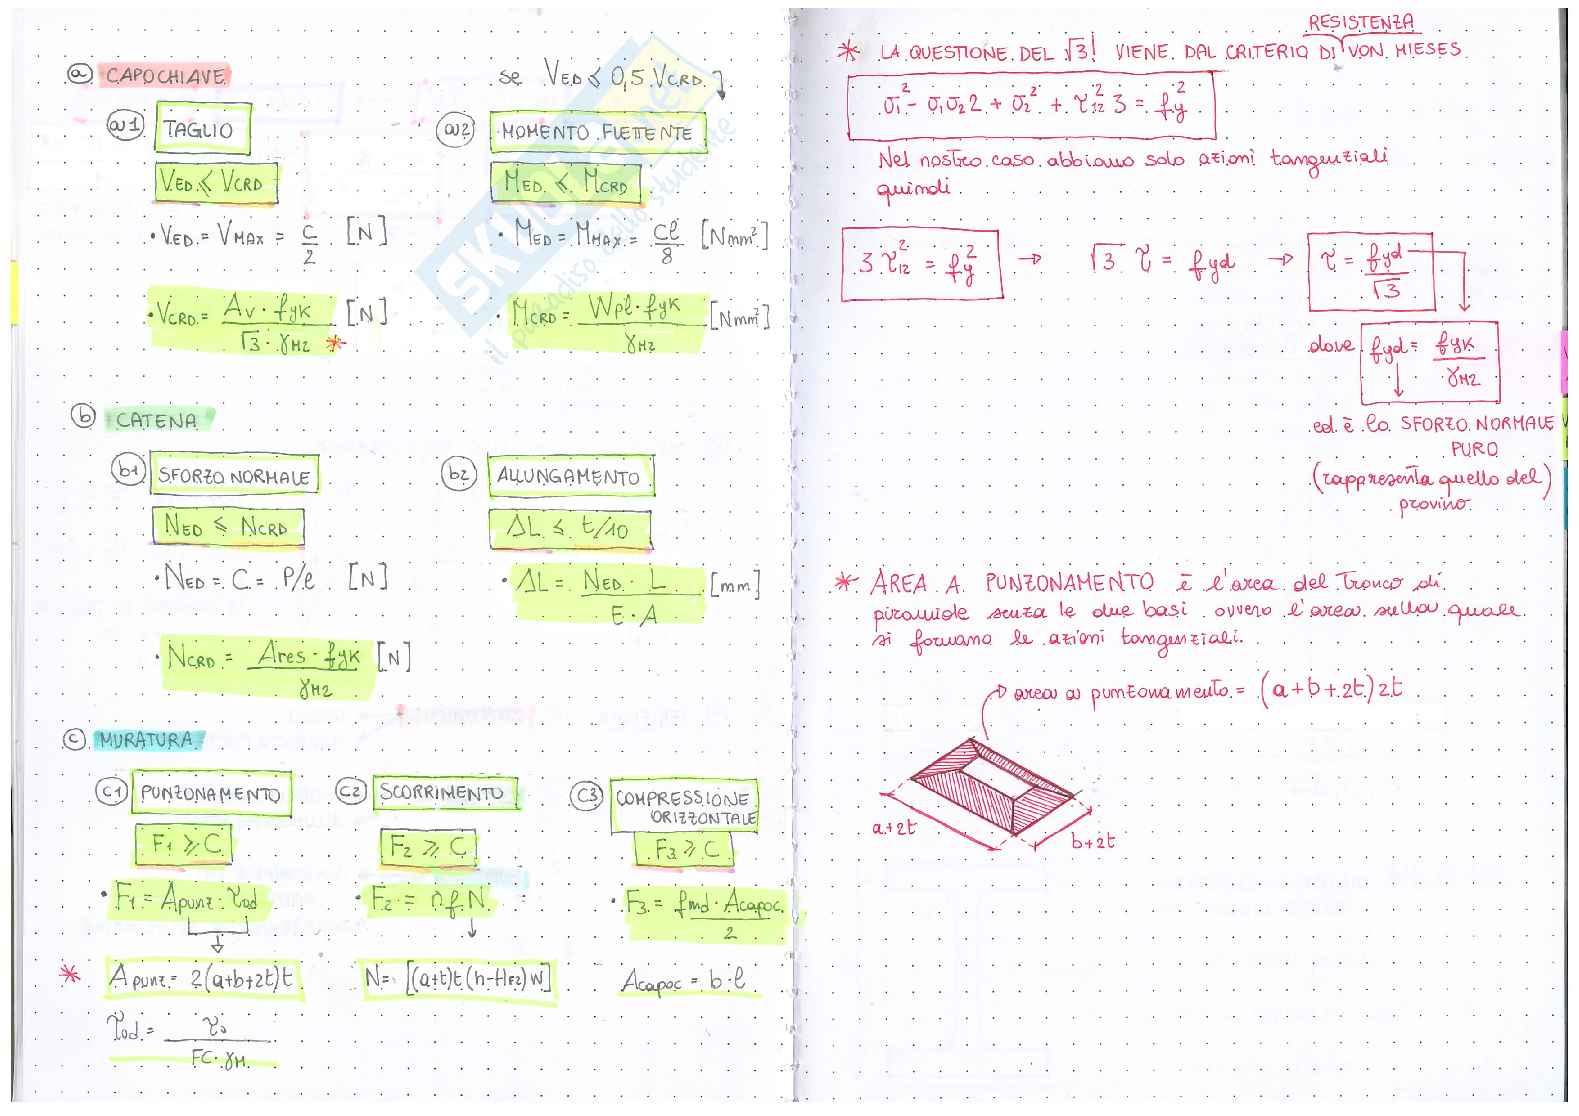 ⓐ CAPOCHIAVE
se V_ED ≤ 0,5 V_CRD
a1 TAGLIO
V_ED ≤ V_CRD
• V_ED = V_MAX = C/2 [N]
• V_CRD = (A_V · fyk)/(√3 · γ_M2) * [N]
a2 MOMENTO FLETTENTE
M_ED ≤ M_CRD
• M_ED = M_MAX = Cl/8 [Nmm²]
• M_CRD = (Wpl · fyk)/γ_M2 [Nmm²]
ⓑ CATENA
b1 SFORZO NORMALE
N_ED ≤ N_CRD
• N_ED = C = P/e [N]
• N_CRD = (Ares · fyk)/γ_M2 [N]
b2 ALLUNGAMENTO
ΔL ≤ t/10
• ΔL = (N_ED · L)/(E · A) [mm]
ⓒ MURATURA
C1 PUNZONAMENTO
F1 ≥ C
• F1 = Apunz · τod
* Apunz = 2(a+b+2t)t
τod = τo/(FC · γM)
C2 SCORRIMENTO
F2 ≥ C
• F2 = n f N
N = [(a+t)t(h-HF2)W]
C3 COMPRESSIONE
ORIZZONTALE
F3 ≥ C
• F3 = (fmd · Acapoc)/2
Acapoc = b · l
SKUOLA.net
il paradiso dello studente
RESISTENZA
* LA QUESTIONE DEL √3! VIENE DAL CRITERIO DI VON MIESES
σ1² - σ1σ2 2 + σ2² + τ12² 3 = fy²
Nel nostro caso abbiamo solo azioni tangenziali
quindi
3 τ12² = fy² → √3 τ = fyd → τ = fyd/√3
dove fyd = fyk/γ_M2
ed è lo SFORZO NORMALE
PURO
(rappresenta quello del)
provino
* AREA A PUNZONAMENTO è l'area del tronco di
piramide senza le due basi ovvero l'area sulla quale
si formano le azioni tangenziali.
area a punzonamento = (a+b+2t)2t
a+2t
b+2t